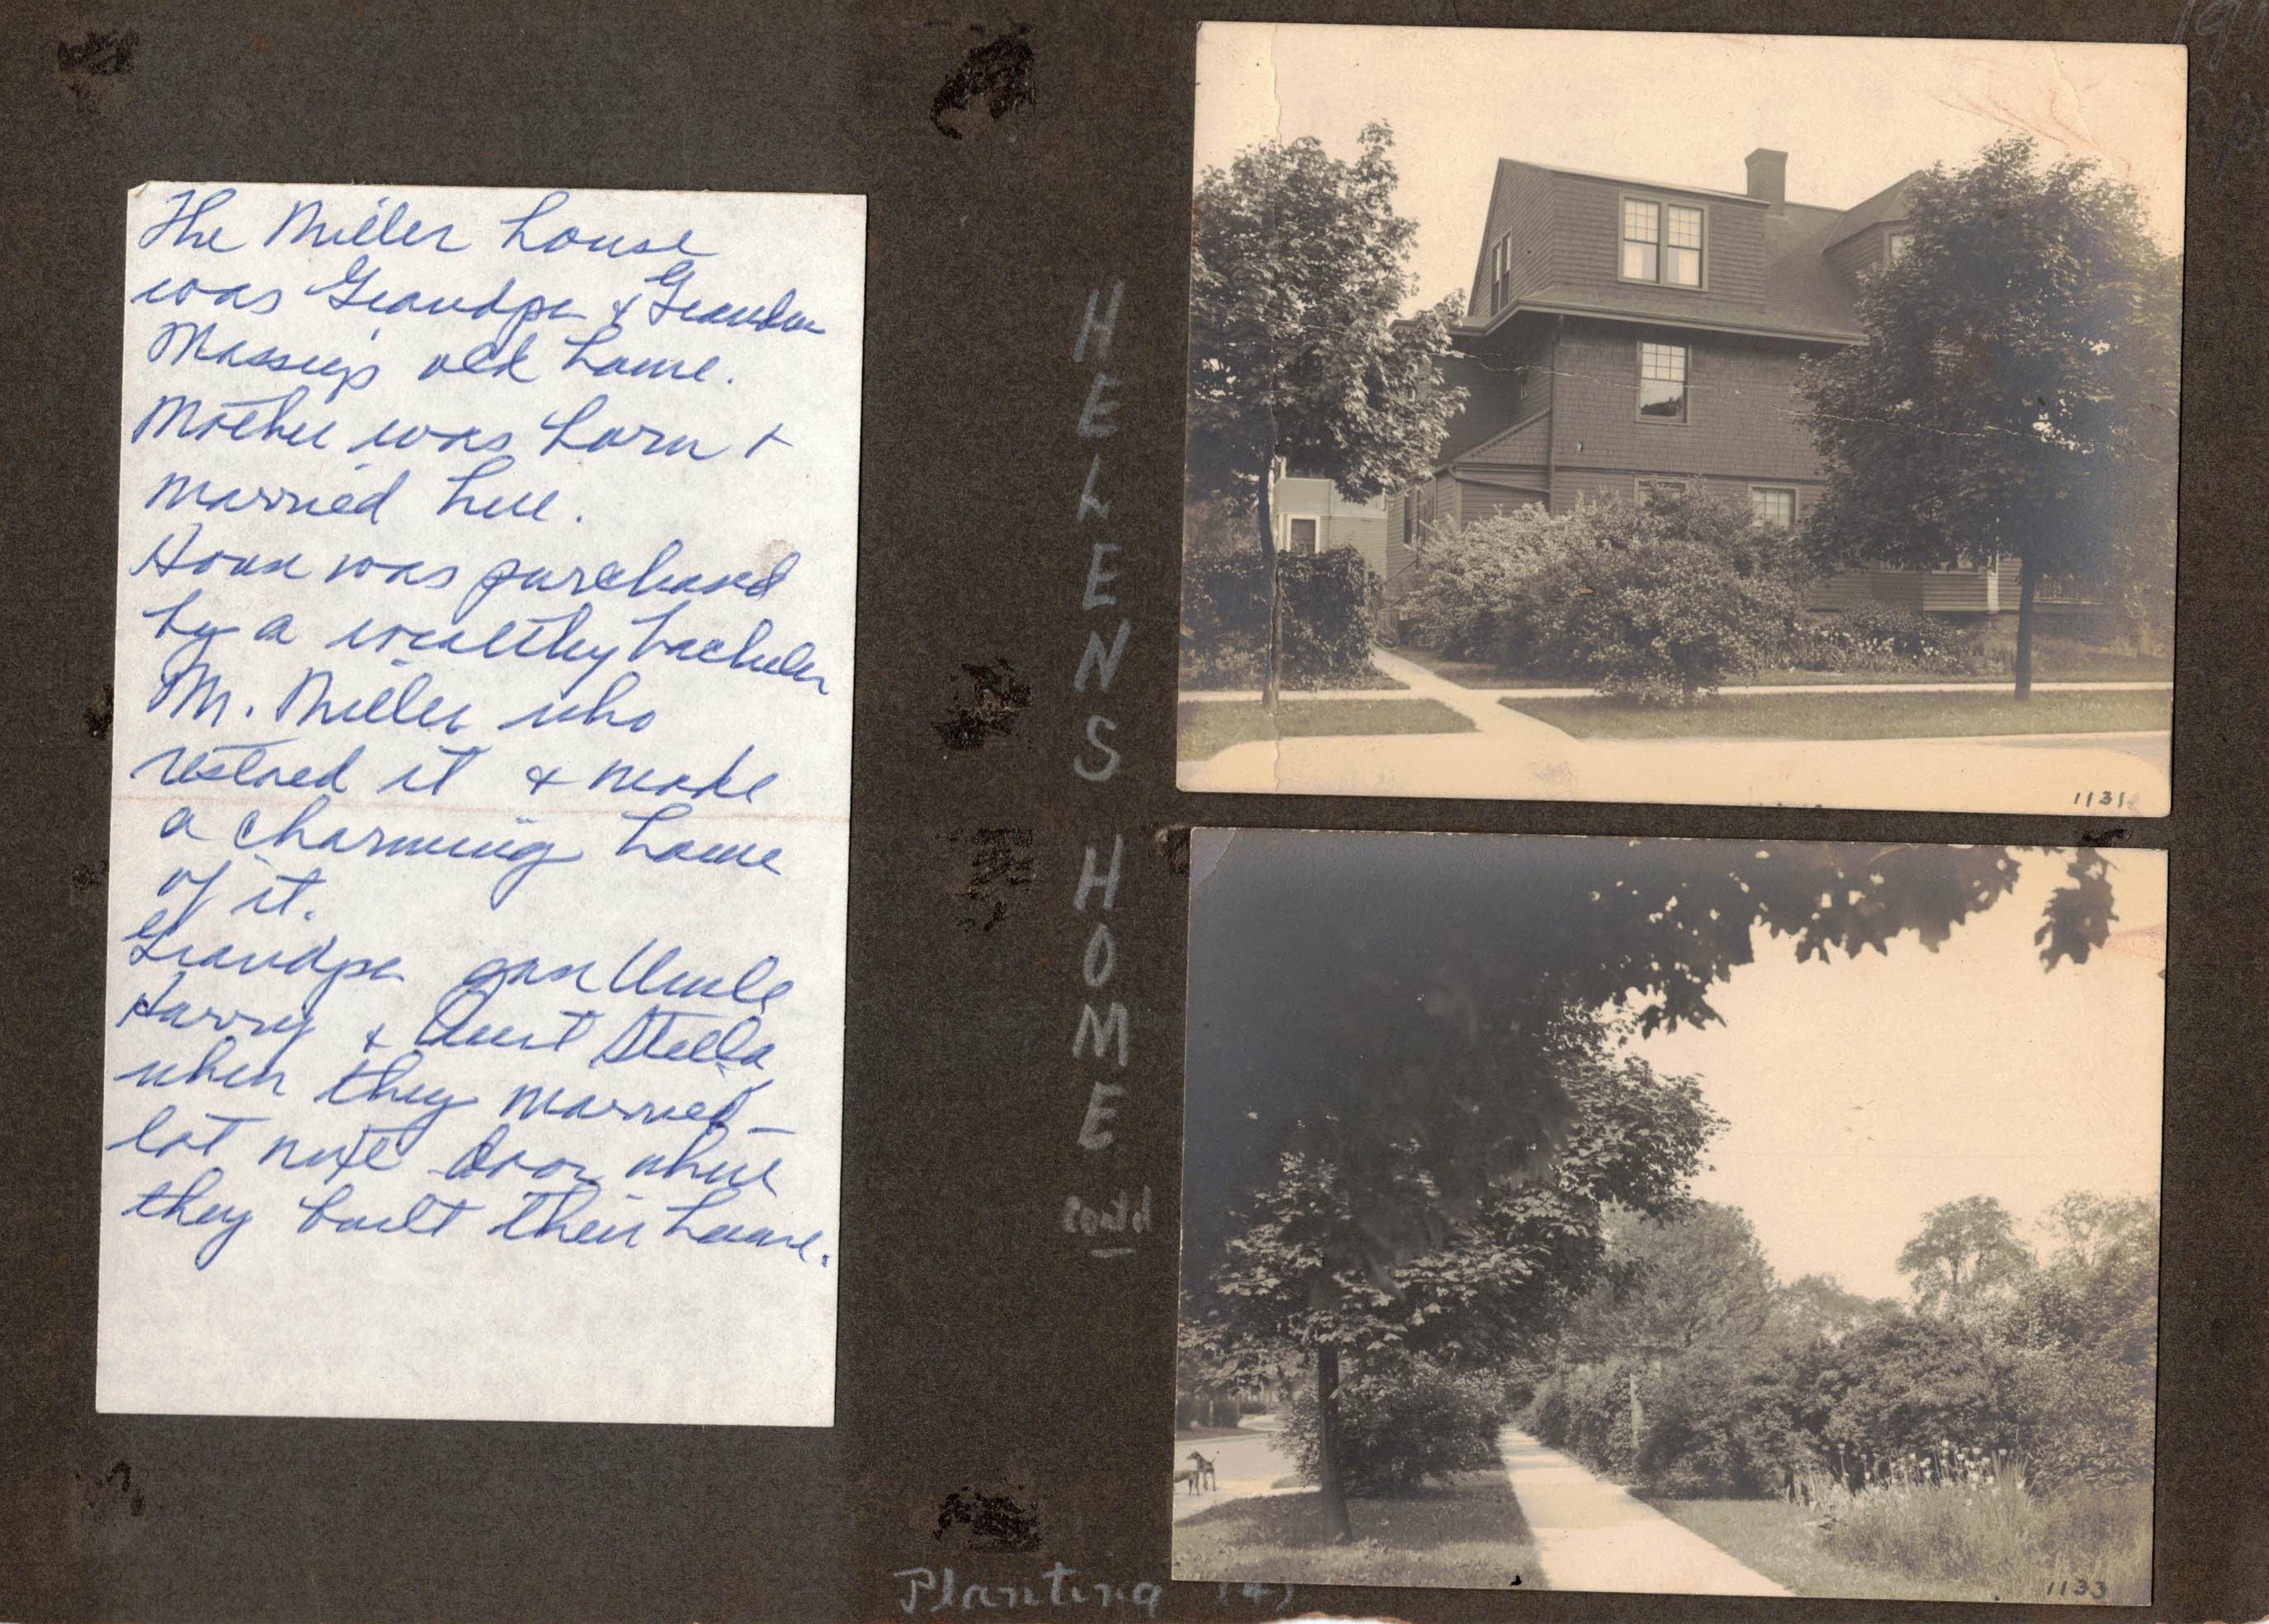 The Miller house
was Grandpa & Grandma
Massey's old home.
Mother was born +
married here.
House was purchased
by a wealthy bachelor
Mr. Miller who
restored it & made
a charming home
of it.
Grandpa gave Uncle
Harry & Aunt Stella
when they married -
lot next door where
they built their home.
HELENS HOME
contd
1131
1133
Planting (4)